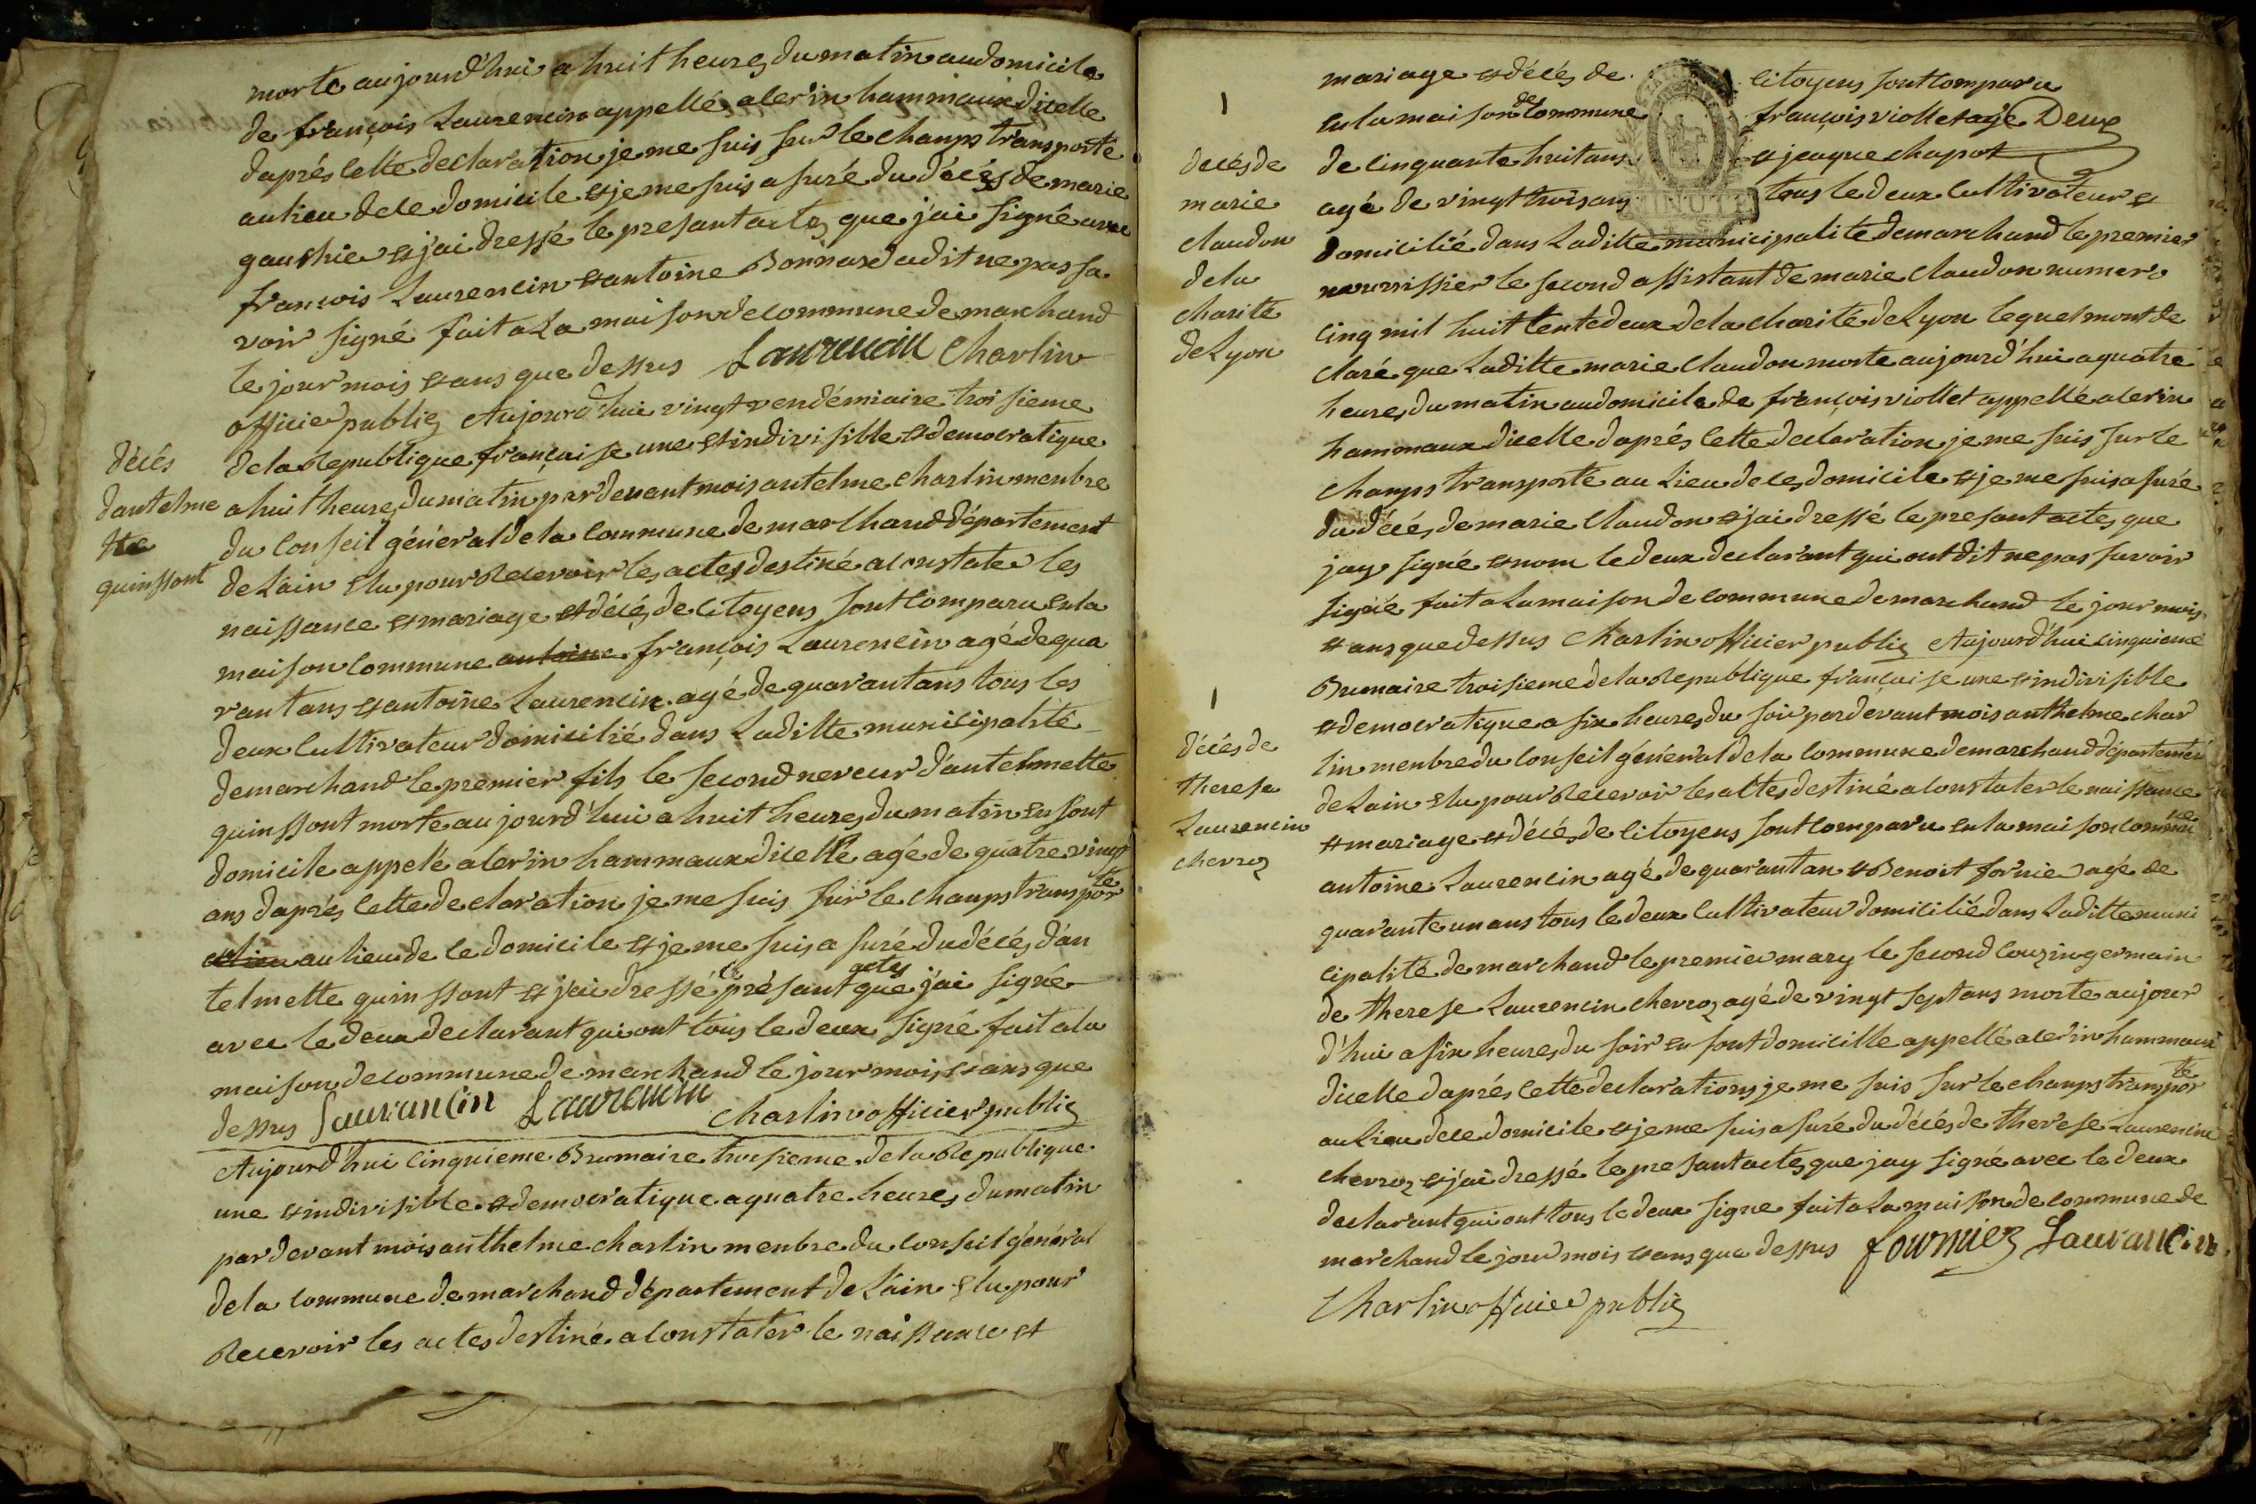 morte aujourd'hui a huit heures du matin au domicile
de françois Laurencin appellé alerin hammaux dicelle
daprés cette declaration je me suis sur le champs transporté
au lieu de ce domicile et je me suis asuré du décés de marie
gauthier et j'ai dressé le presant actes que j'ai signé avec
françois Laurencin et antoine Bonnard a dit ne pas sa
voir signé fait a La maison de commune de marchand
le jour mois et ans que dessus Laurencin Charlin
officier publiq Aujourd'hui vingt vendémiaire troisieme
décés
dantelme
tte
quinssont
de la Republique française une et indivisible et democratique
a huit heures du matin par devant mois antelme charlin menbre
du Conseil général de la Commune de marchand département
de Lain Elu pour Recevoir les actes destiné a constater les
naissance et mariage et décés de Citoyens sont Comparu en la
maison Commune antoine françois Laurencin agé de qua
rant ans et antoine Laurencin agé de quarantans tous les
deux Cultivateur domicilié dans Laditte municipalité
de marchand le premier fils le second neveur d'antelmette
quinssont morte aujourd'hui a huit heures du matin en sont
domicile appelé alerin hammaux dicelle agé de quatre vingt
ans daprés cette declaration je me suis sur le champs transpor
té
au lieu de ce domicile et je me suis asuré du décés d'an
telmette quinssont et j'ai dressé le présant actes que j'ai signé
avec le deux declarant qui ont tous le deux signé fait a la
maison de commune de marchand le jour mois et ans que
dessus Laurancin Laurencin Charlin officier publiq
Aujourd'hui Cinquieme Brumaire troisieme de la Republique
une et indivisible et democratique a quatre heures du matin
par devant mois anthelme charlin menbre du conseil général
de la commune de marchand département de Lain Elu pour
Recevoir les actes destiné a Constater le naissance et
mariage et décés de citoyens sont Comparu
en la maison de Commune françois viollet agé Deux
de Cinquante huit ans et jeaque chapot
agé de vingt trois ans tous le deux Cultivateur et
MINUTE
1
decés de
marie
claudon
de la
charité
de Lyon
domicilié dans Laditte municipalite de marchand le premier
nourrissier le second assistant de marie claudon numero
Cinq mil huit Cente deux de la charité de Lyon lequel mont de
claré que Laditte marie claudon morte aujourd'hui a quatre
heures du matin au domicile de françois viollet appellé alerin
hammaux dicelle daprés cette declaration je me suis sur le
champs transporté au Lieu de ces domicile et je me suis asuré
du décés de marie claudon et j'ai dressé le presant actes que
jay signé et nom le deux declarant qui ont dit ne pas savoir
signé fait a La maison de commune de marchand le jour mois
et ans que dessus Charlin officier publiq Aujourd'hui cinquieme
1
décés de
therese
Laurencin
cherroz
Brumaire troisieme de la Republique française une et indivisible
et democratique a six heures du soir par devant mois anthelme char
lin menbre du Conseil général de la Commune de marchand département
de Lain Elu pour Recevoir les actes destiné a constater le naissance
et mariage et décés de Citoyens sont Comparu en la maison commu
ne
antoine Laurencin agé de quarant an et Benoit fornier agé de
quarante un ans tous le deux Cultivateur domicilié dans Laditte muni
cipalité de marchand le premier mary le second Couzin germain
de therese Laurencin cherroz agé de vingt sept ans morte aujour
d'hui a six heures du soir en sont domicille appellé alerin hammaux
dicelle daprés cette declarations je me suis sur le champs transpor
té
au Lieu de ce domicile et je me suis asuré du décés de therese Laurencin
cherroz et j'ai dressé le presant actes que jay signé avec le deux
declarant qui ont tous le deux signe fait a La maison de commune de
marchand le jour mois et ans que dessus fournier Laurancin
Charlin officier publiq